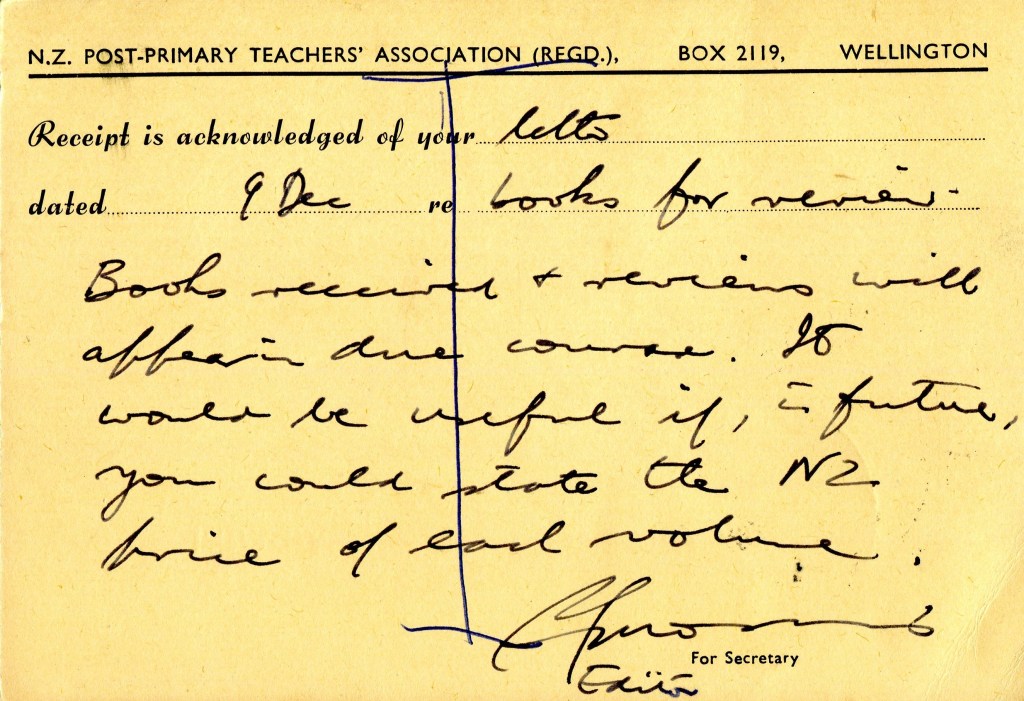 N.Z. POST-PRIMARY TEACHERS' ASSOCIATION (REGD.), BOX 2119, WELLINGTON
Receipt is acknowledged of your letter
dated 9 Dec re books for review.
Books received + reviews will
appear in due course. It
would be useful if, in future,
you could state the NZ
price of each volume.
For Secretary
Editor